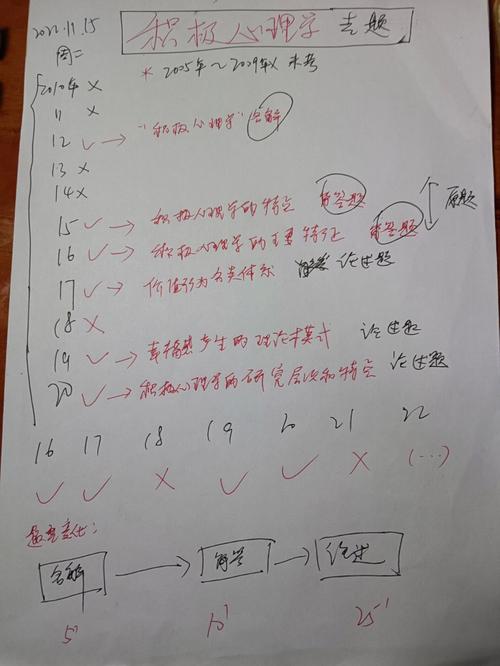 2022.11.15
积极心理学 专题
周二
* 2005年～2009年 未考
2010年 ×
11 ×
12 ✓ → "积极心理学" 名解
13 ×
14 ×
15 ✓ → 积极心理学的特点 简答题 原题
16 ✓ → 积极心理学的主要特征 简答题
17 ✓ → 价值行为 体系 论述题
18 ×
19 ✓ → 幸福感产生的理论 论述题
20 ✓ → 积极心理学的研究层次和特点 论述题
16 17 18 19 20 21 22
✓ ✓ × ✓ ✓ × (…)
名解 → 简答 → 论述
5' 10' 25'